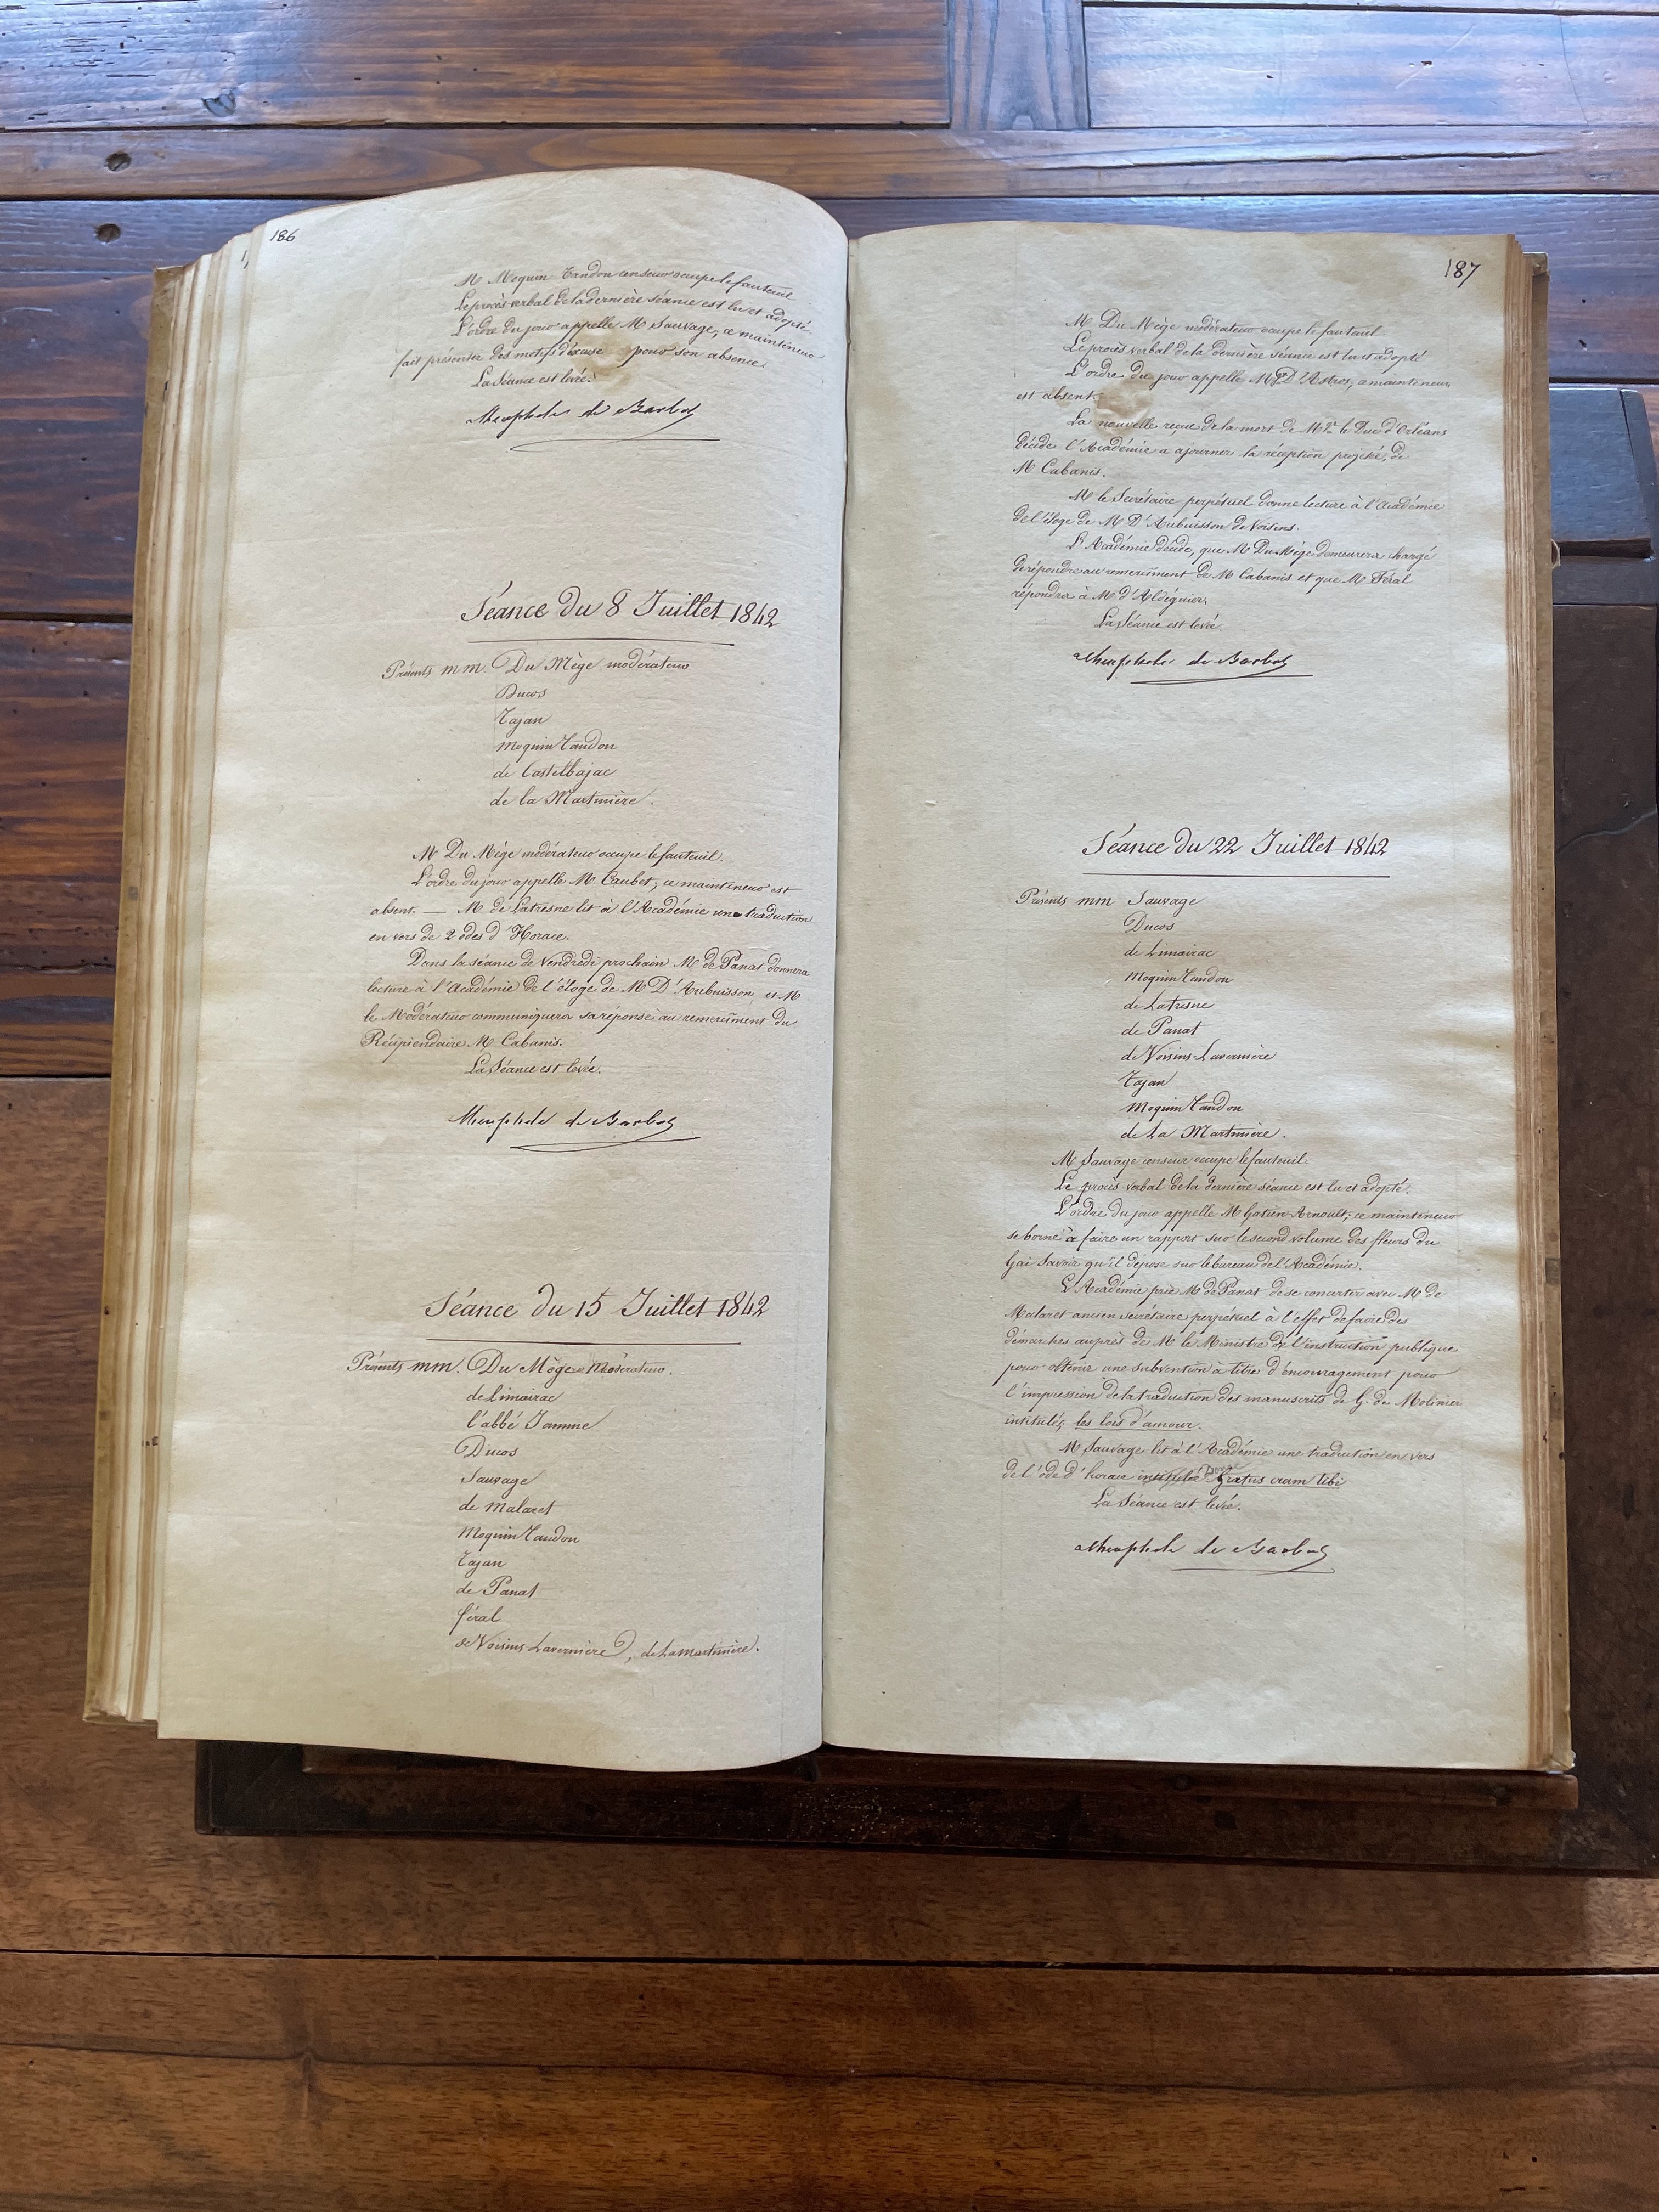 186
M Moquin Tandon censeur occupe le fauteuil
Le procès verbal de la dernière séance est lu et adopté.
L'ordre du jour appelle M Sauvage, ce mainteneur
fait présenter des motifs d'excuse pour son absence.
La Séance est levée.
de
Séance du 8 Juillet 1842
Présents mm. Du Mège modérateur
Ducos
Tajan
Moquin Tandon
de Castelbajac
de la Martinière.
M Du Mège modérateur occupe le fauteuil.
L'ordre du jour appelle M Caubet, ce mainteneur est
absent. — M de Latresne lit à l'Académie une traduction
en vers de 2 odes d'Horace.
Dans la séance de Vendredi prochain M de Panat donnera
lecture à l'Académie de l'éloge de M D'Aubuisson, et M
le Modérateur communiquera sa réponse au remerciment du
Récipiendaire M Cabanis.
La Séance est levée.
de
Séance du 15 Juillet 1842
Présents mm. Du Mège Modérateur.
de Limairac
l'abbé Jamme
Ducos
Sauvage
de Malaret
Moquin Tandon
Tajan
de Panat
féral
de Voisins-Lavernière, de Lamartinière.
187
M Du Mège modérateur occupe le fauteuil
Le procès verbal de la dernière séance est lu et adopté
L'ordre du jour appelle Mgr D'Astros, ce mainteneur
est absent.
La nouvelle reçue de la mort de Mgr le Duc d'Orléans
décide l'Académie a ajourner la réception projetée, de
M Cabanis.
M le Secrétaire perpétuel donne lecture à l'Académie
de l'éloge de M D'Aubuisson de Voisins.
L'Académie décide, que M Du Mège demeurera chargé
de répondre au remerciment de M Cabanis et que M Féral
répondra à M d'Aldéguier.
La Séance est levée.
de
Séance du 22 Juillet 1842
Présents mm Sauvage
Ducos
de Limairac
Moquin Tandon
de Latresne
de Panat
de Voisins-Lavernière
Tajan
Moquin Tandon
de La Martinière.
M Sauvage censeur occupe le fauteuil.
Le procès verbal de la dernière séance est lu et adopté.
L'ordre du jour appelle M Gatien-Arnoult, ce mainteneur
se borne à faire un rapport sur le second volume des fleurs du
Gai Savoir qu'il dépose sur le bureau de l'Académie.
L'Académie prie M de Panat de se concerter avec M de
Malaret ancien secrétaire perpétuel à l'effet de faire des
démarches auprès de M le Ministre de l'instruction publique
pour obtenir une subvention à titre d'encouragement pour
l'impression de la traduction des manuscrits de G. du Molinier
intitulés, les lois d'amour.
M Sauvage lit à l'Académie une traduction en vers
de l'ode d'horace intitulée Donec Gratus eram tibi
La Séance est levée.
de